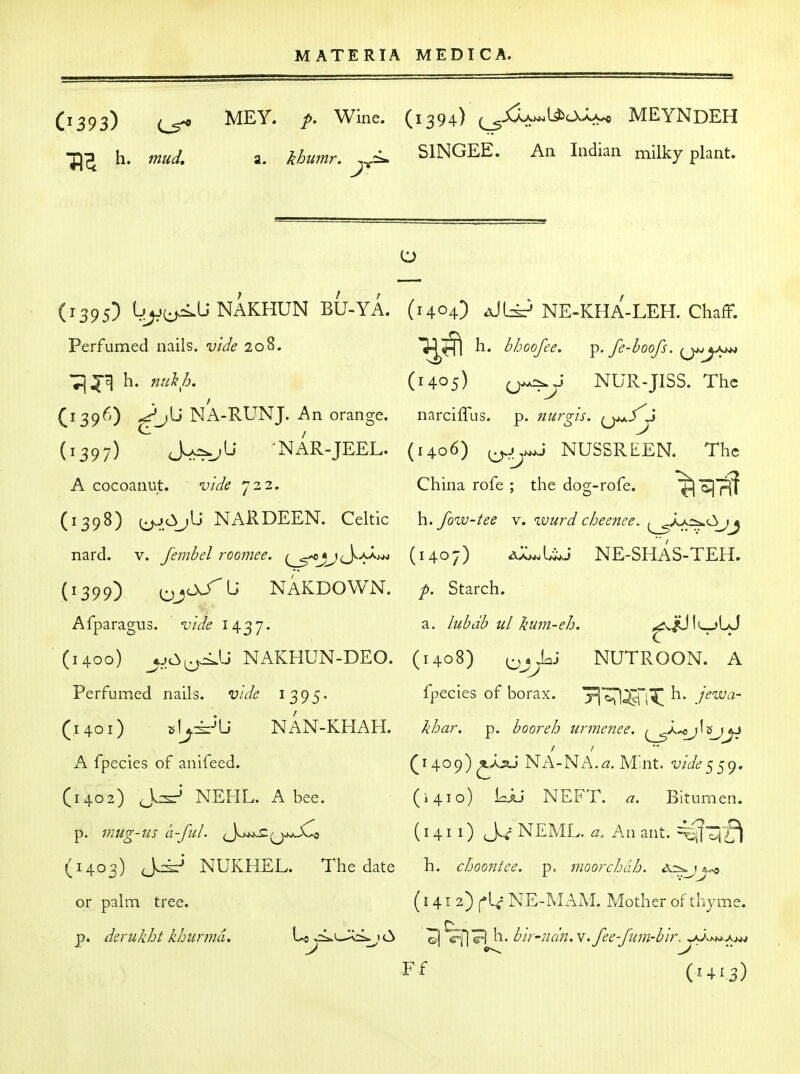 MATERIA MEDICA.
(1393) مي MEY. p. Wine.
h. mud. a. khumr. خمر
(1394) MEYNDEH
SINGEE. An Indian milky plant.
ن
(1395) ناخن بويا NAKHUN BU-YA.
Perfumed nails. vide 208.
h. nukh.
(1396) نارنج NA-RUNJ. An orange.
(1397) نارجيل NAR-JEEL.
A cocoanut. vide 722.
(1398) ناردين NARDEEN. Celtic
nard. v. sembel roomee. سنبل رومي
(1399) ناكدون NAKDOWN.
Asparagus. vide 1437.
(1400) ناخن ديو NAKHUN-DEO.
Perfumed nails. vide 1395.
(1401) نانخواه NAN-KHAH.
A species of anifeed.
(1402) نحل NEHL. A bee.
p. mug-us a-ful. مكس عسل
(1403) نخل NUKHEL. The date
or palm tree.
p. derukht khurma. درخت خرما
(1404) نخاله NE-KHA-LEH. Chaff.
भूसी h. bhoosee. p. se-boofs. سبوس
(1405) نرجس NUR-JISS. The
narcissus. p. nurgis. نركس
(1406) نسرين NUSSREEN. The
China rose ; the dog-rose.
h. sow-tee v. wurd cheenee. ورد چيني
(1407) نشاسته NE-SHAS-TEH.
p. Starch.
a. lubab ul kum-eh.
(1408) نطرون NUTROON. A
species of borax. h. jewa-
khar. p. booreh urmenee. بوره ارمني
(1409) نعنع NA-NA. a. Mint. vide 559.
(1410) نفط NEFT. a. Bitumen.
(1411) نمل NEML. a. An ant.
h. choontee. p. moorchah. مورچه
(1412) نمام NE-MAM. Mother of thyme.
h. bir-nan. v. see-sum-bir. سيسنبر
Ff (1413)